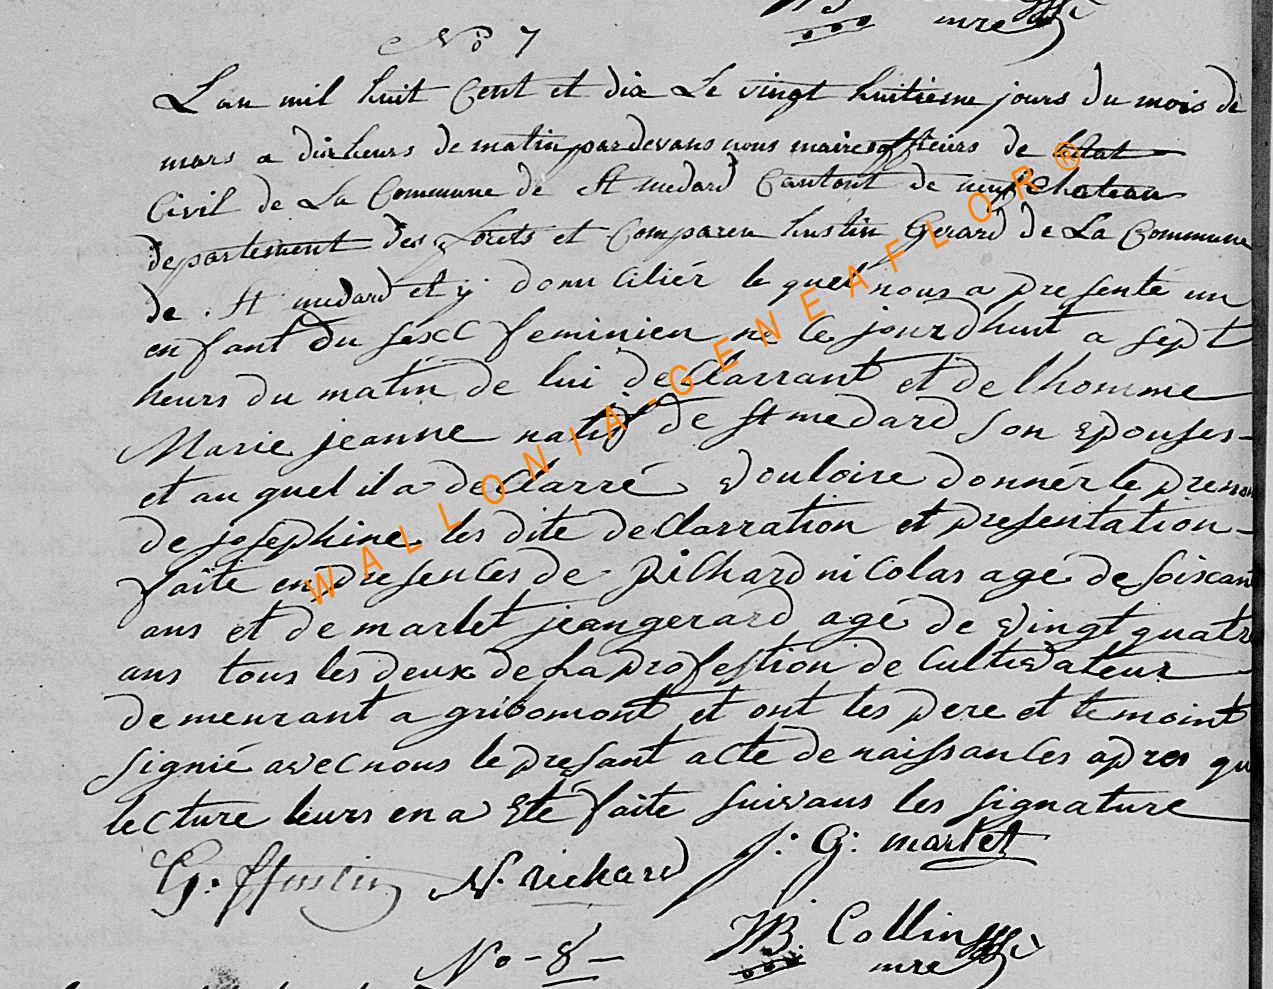 mre
No 7
Lan mil huit Cent et dix Le vingt huitieme jours du mois de
mars a dix heurs de matin pardevans nous maire officiers de letat
Civil de La Commune de St medard Cantont de neufchateau
departement des forets et Comparen hustin Gerard de La Commune
de St medard et y domicilier le quel nous a presenté un
enfant du sexe feminien né le jourdhuit a sept
heurs du matin de lui declarrant et de lhomme
Marie jeanne natif de St medard son epouses
et au quel il a declarré vouloire donnér le prenom
de josephine les dite declarration et presentation
faite en presences de Richard nicolas age de soixant
ans et de martet jean gerard agé de vingt quatre
ans tous les deux de La profestion de cultivateur
demeurant a gribomont et ont les pere et temoint
signié avec nous le presant acte de naissances apres qu
lecture leurs en a Ete faite suivans les signature
G. Hustin N. richard J. G. martet
JB. Collin
No - 8 - mre
WALLONIA-GENEAFLOR®